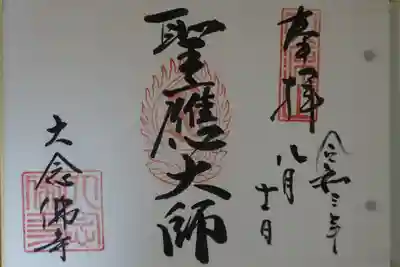 奉拝
令和三年
八月十一日
聖應大師
大念佛寺